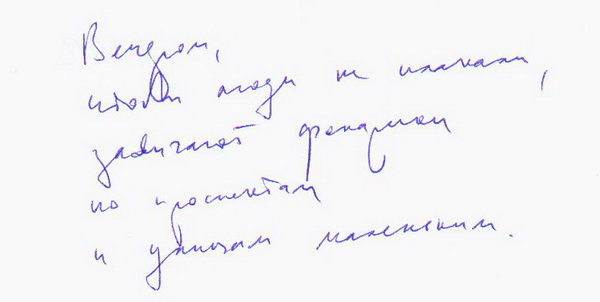 Вечером,
чтобы люди не плакали,
зажигают фонарики
по проспектам
и улицам маленьким.